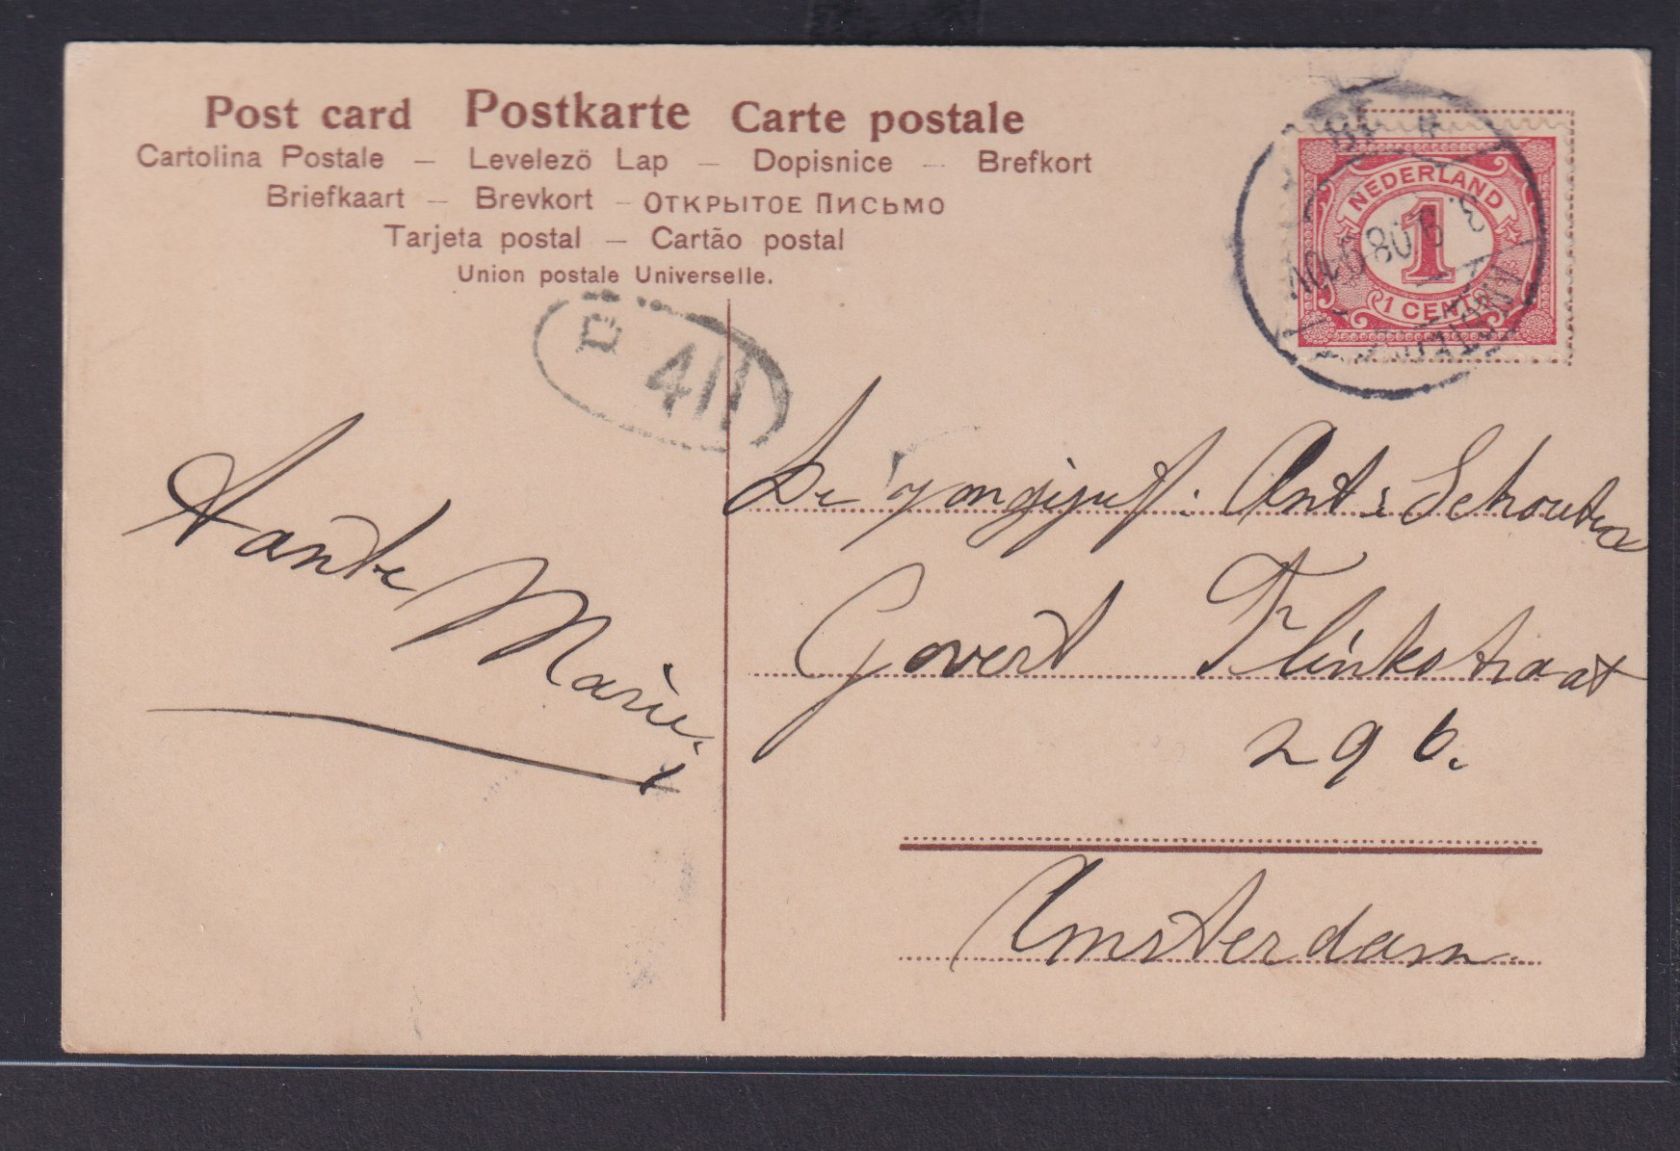 Post card Postkarte Carte postale
Cartolina Postale – Levelezö Lap – Dopisnice – Brefkort
Briefkaart – Brevkort – Открытое Письмо
Tarjeta postal – Cartão postal
Union postale Universelle.
NEDERLAND
1
1 CENT
3. 9. 08
411
Tante Marie.
De jongejuf: Ant: Schouten
Govert Flinkstraat
296.
Amsterdam.